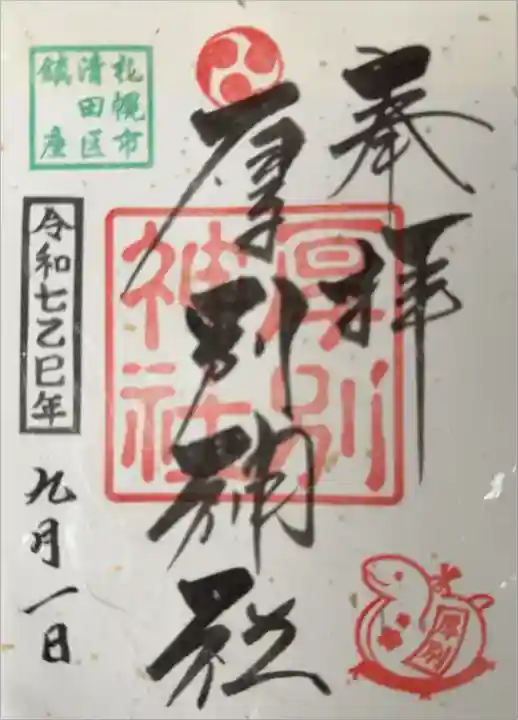 奉拝
厚別神社
厚別
神社
札幌市
清田区
鎮座
令和七乙巳年
九月一日
厚別